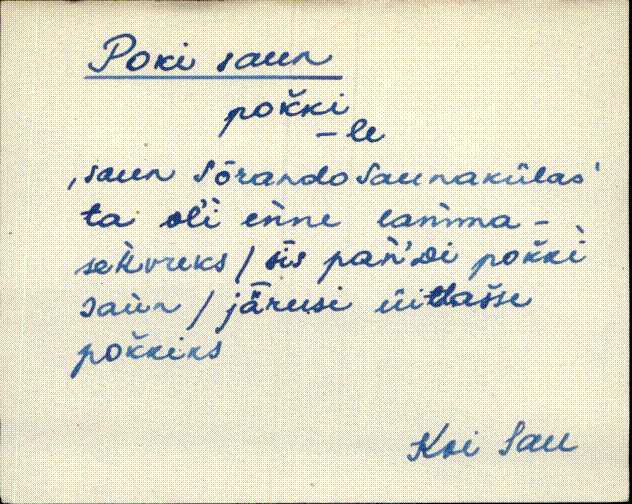 Poki saun
pok̆ki
– le
‚saun Sõrando Saunakülas‘
ta ol'i en̆ne lam̆ma –
sek̆vreks / sīs pań'di pok̆ki
saùn / jǟrusi üitlašse
pok̆kiks
Koi Sau